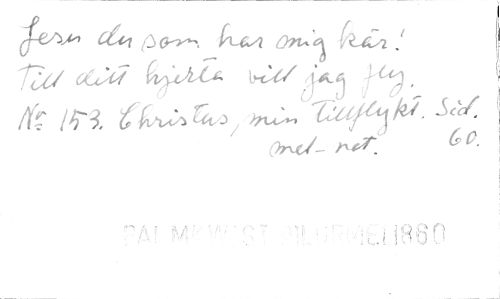 Jesu du som har mig kär!
Till ditt hjerta vill jag fly.
No 153. Christus, min Tillflykt. Sid.
mel-not. 60.
1860